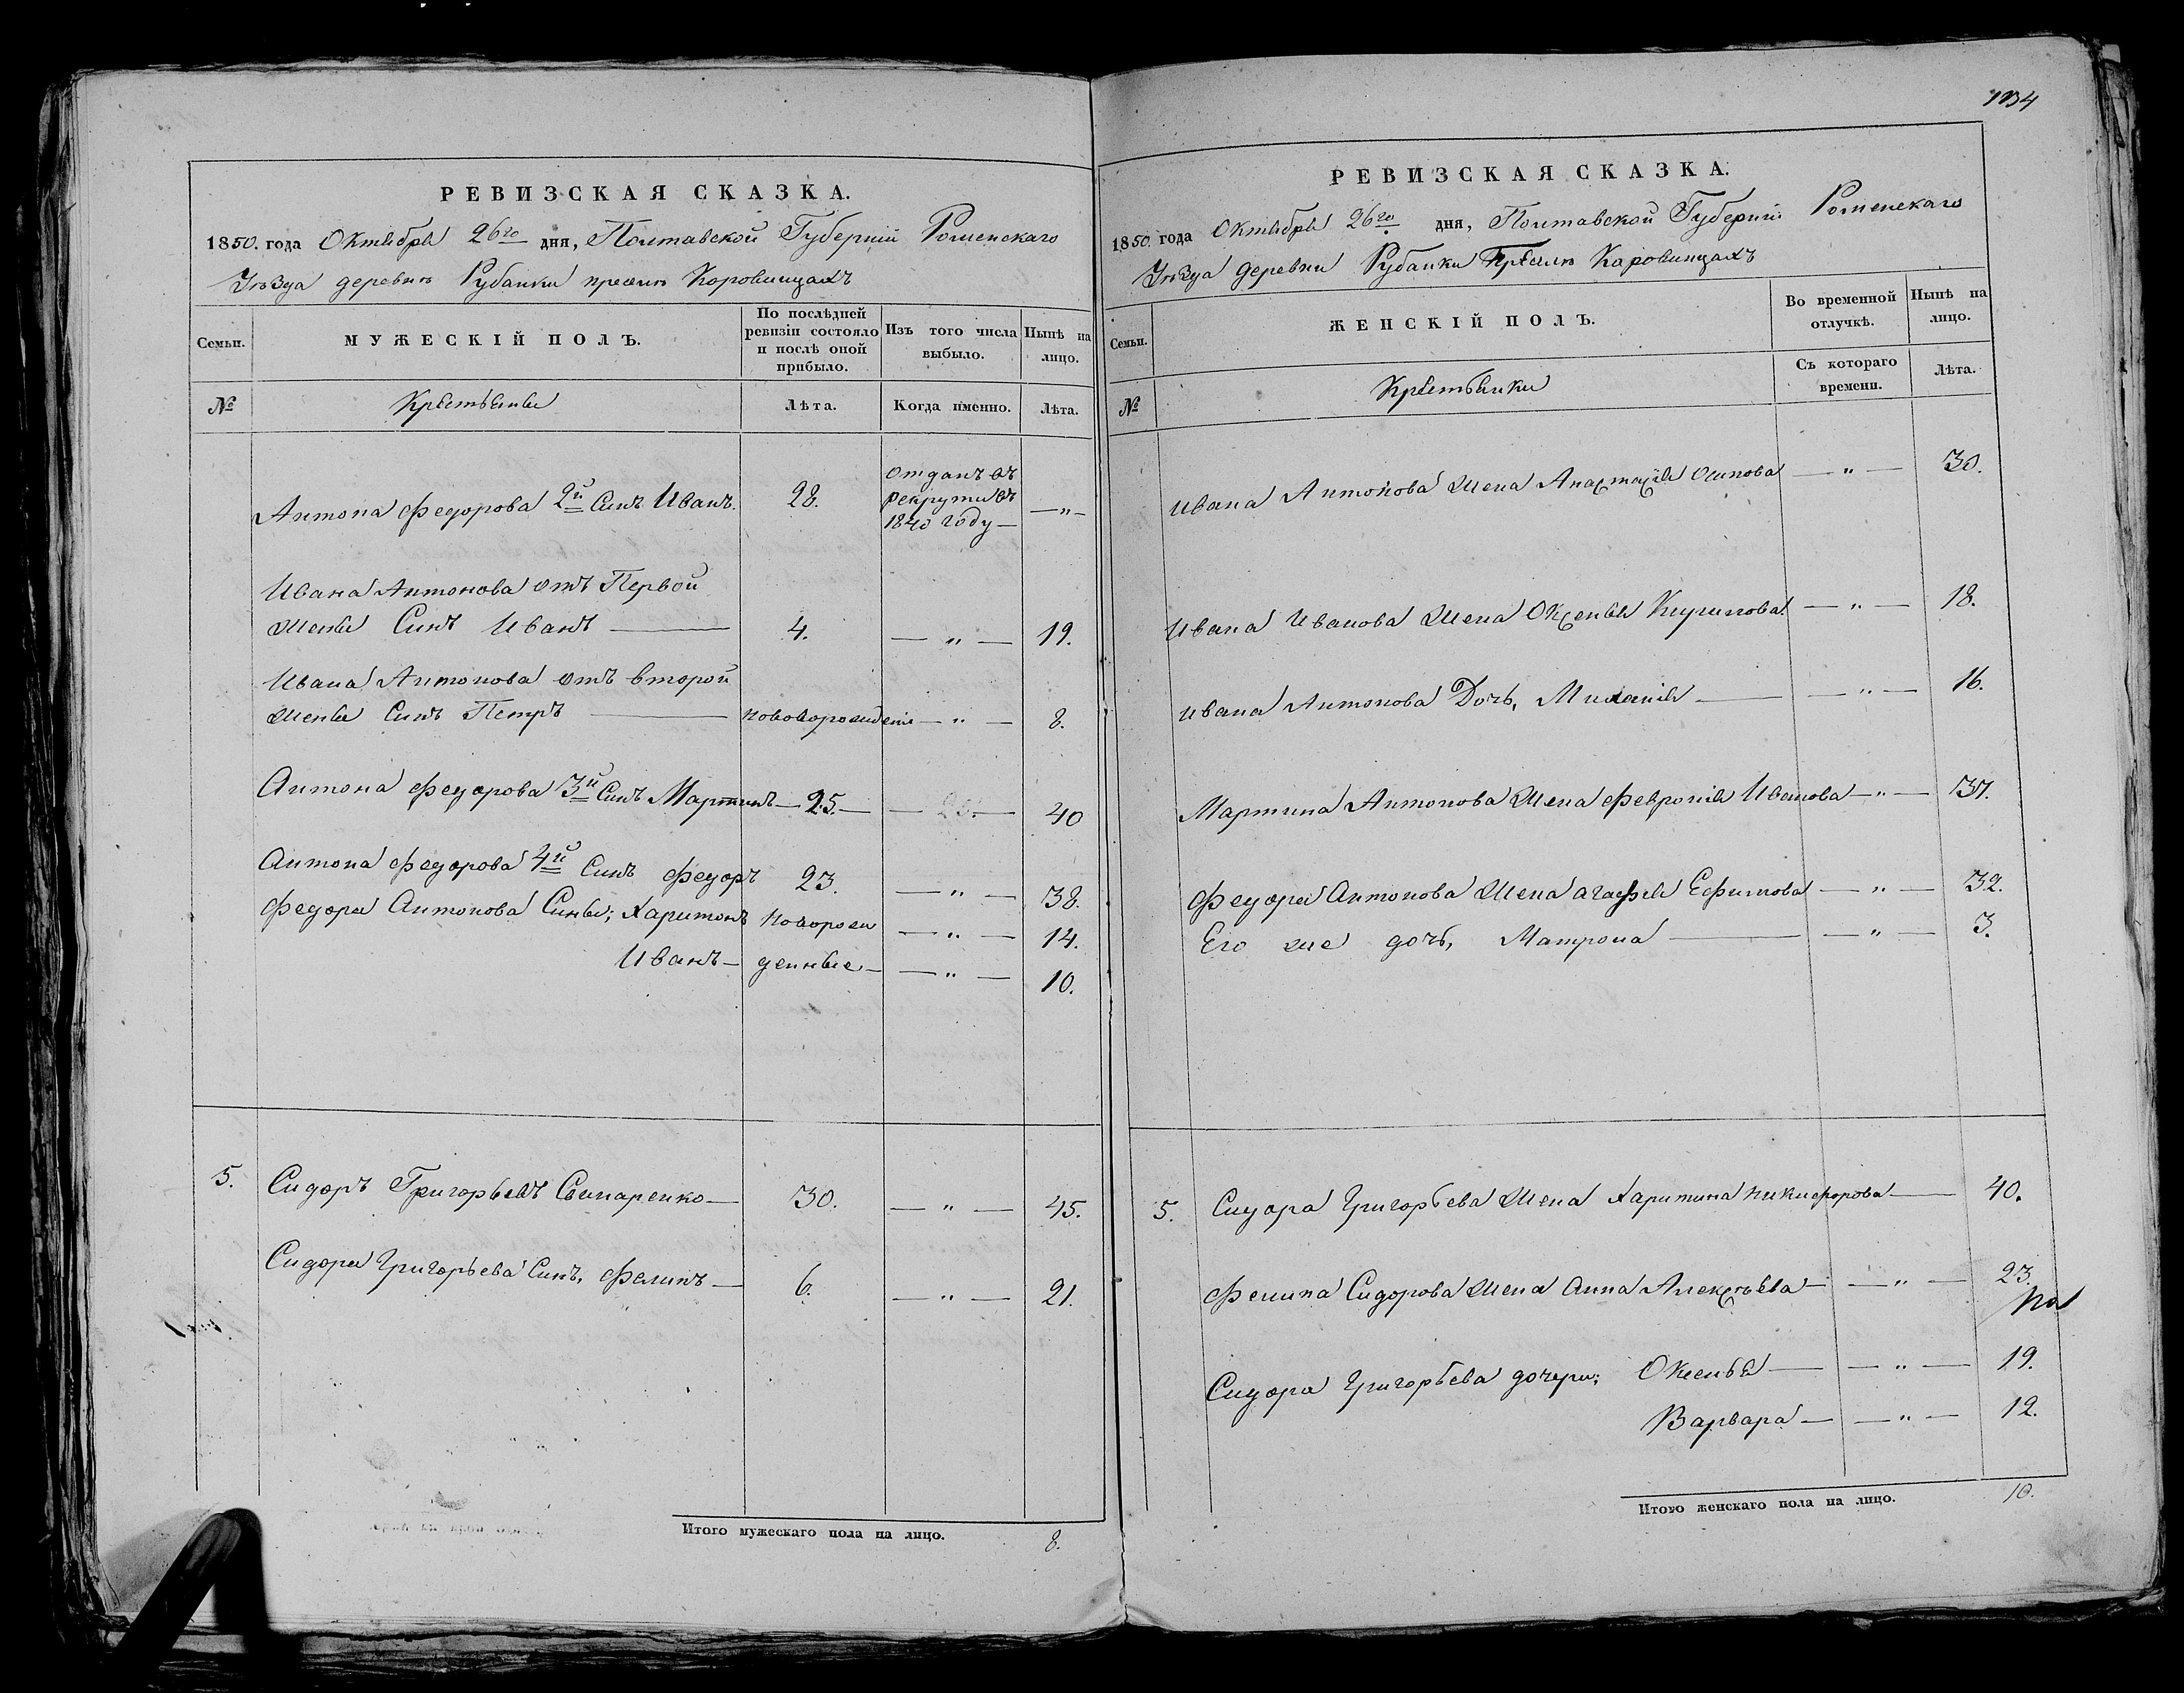 РЕВИЗСКАЯ СКАЗКА.
1850. года Октября 26го дня, Полтавской Губерніи Роменскаго
Уѣзда деревни Рубанки при селѣ Коровинцахъ
Семьи.
МУЖЕСКІЙ ПОЛЪ.
По послѣдней ревизіи состояло и послѣ оной прибыло.
Изъ того числа выбыло.
Нынѣ на лицо.
№
Крестьяне
Лѣта.
Когда именно.
Лѣта.
Антона Федорова 2й Синъ Иванъ. 28. отданъ въ рекрути въ 1840 году — — " —
Ивана Антонова отъ Первой
жены Синъ Иванъ — 4. — " — 19.
Ивана Антонова отъ второй
жены Синъ Петръ — новорожденъ — " — 8.
Антона Федорова 3й Синъ Мартинъ — 25. — 40
Антона Федорова 4й Синъ Федоръ 23. — " — 38.
Федора Антонова Сины; Харитонъ новорож — " — 14.
Иванъ — денные — — " — 10.
5. Сидоръ Григорьевъ — 30. — " — 45.
Сидора Григорьева Синъ, Филипъ — 6. — " — 21.
Итого мужескаго пола на лицо. 8.
134
РЕВИЗСКАЯ СКАЗКА.
1850. года Октября 26го дня, Полтавской Губерніи Роменскаго
Уѣзда деревни Рубанки при селѣ Каровинцахъ
Семьи.
ЖЕНСКІЙ ПОЛЪ.
Во временной отлучкѣ.
Нынѣ на лицо.
№
Крестьянки
Съ котораго времени.
Лѣта.
Ивана Антонова жена Анастасія Осипова — " — 30.
Ивана Иванова жена Оксенья Кирилова — " — 18.
Ивана Антонова Дочь, Миланія — — " — 16.
Мартина Антонова жена Февронія Иванова — " — 37.
Федора Антонова жена Агафія Ефимова — " — 32.
Его же дочь, Матрона — — " — 3.
5. Сидора Григорьева жена Харитина Никифорова — 40.
Филипа Сидорова жена Анна Алексѣева — — " — 23.
Сидора Григорьева дочери; Оксенья — — " — 19.
Варвара — — " — 12.
Итого женскаго пола на лицо. 10.